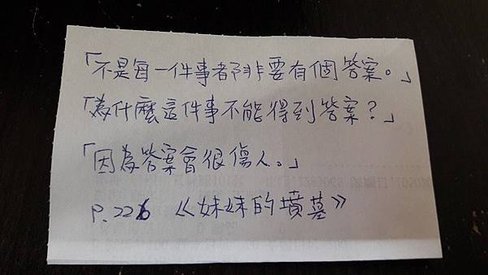 「不是每一件事都非要有個答案。」
「為什麼這件事不能得到答案？」
「因為答案會很傷人。」
P.226 《妹妹的墳墓》